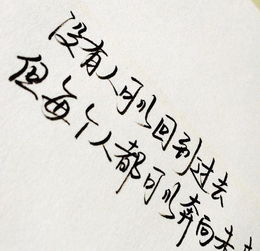 没有人可以回到过去
但每个人都可以奔向未